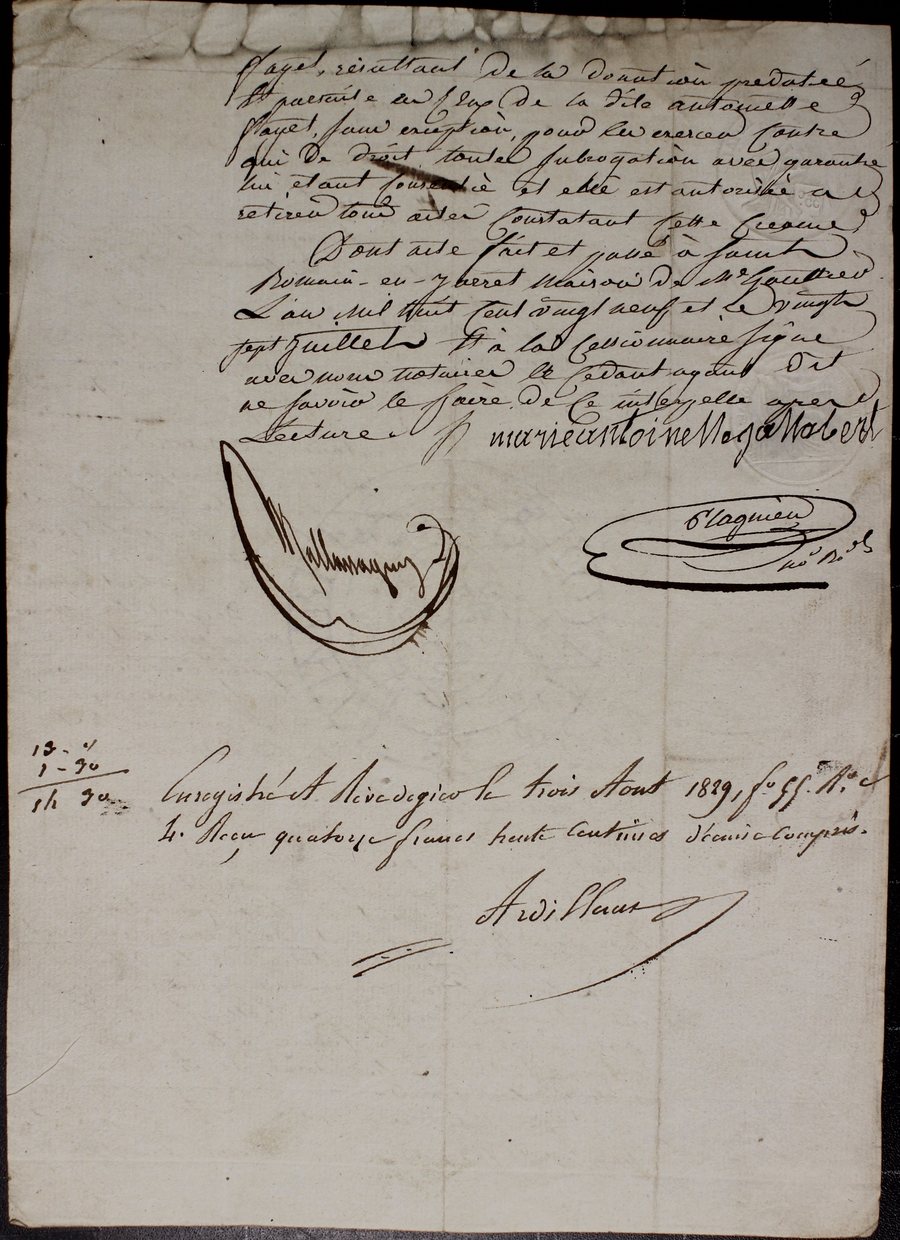 fayet, résultant de la donation predatée,
et passée en f de la dite antoinette
fayet, sans exception, pour les exercer Contre
qui de droit, toutes subrogation avec garantie
lui etant consentie et elle est autorisée a
retirer tous actes Constatant Cette Creance
Dont acte fait et passé à Saint
Romain-en-jarret maison de Me
L'an mil huit Cent vingt neuf et le vingt
sept juillet Et à la Cessionnaire signé
avec nous notaires le Cedant ayant Dit
ne savoir le faire de Ce interpellé apres
Lecture. marie antoinette jallabert
Plagnieu
No. R.al
13 - "
1 - 30
14 30
Enregistré A Rivedegier le trois Aout 1829, fo 55. Ro. C
4. Reçu quatorze francs trente Centimes décime compris.